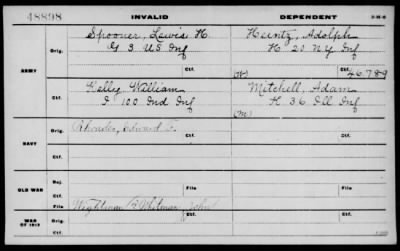 48898 INVALID DEPENDENT
Spooner, Lewis H Heintz, Adolph
Orig. G 3 US Inf K 20 N.Y. Inf
ARMY Ctf. (W) Ctf. 46.789
Kelly William Mitchell, Adam
Ctf. I 100 Ind Inf K 36 Ill Inf
(M)
Orig. Rhoades, Edward F.
NAVY
Ctf.
Rej.
OLD WAR Ctf. File File
Wightman or Whitman John
WAR OF 1812